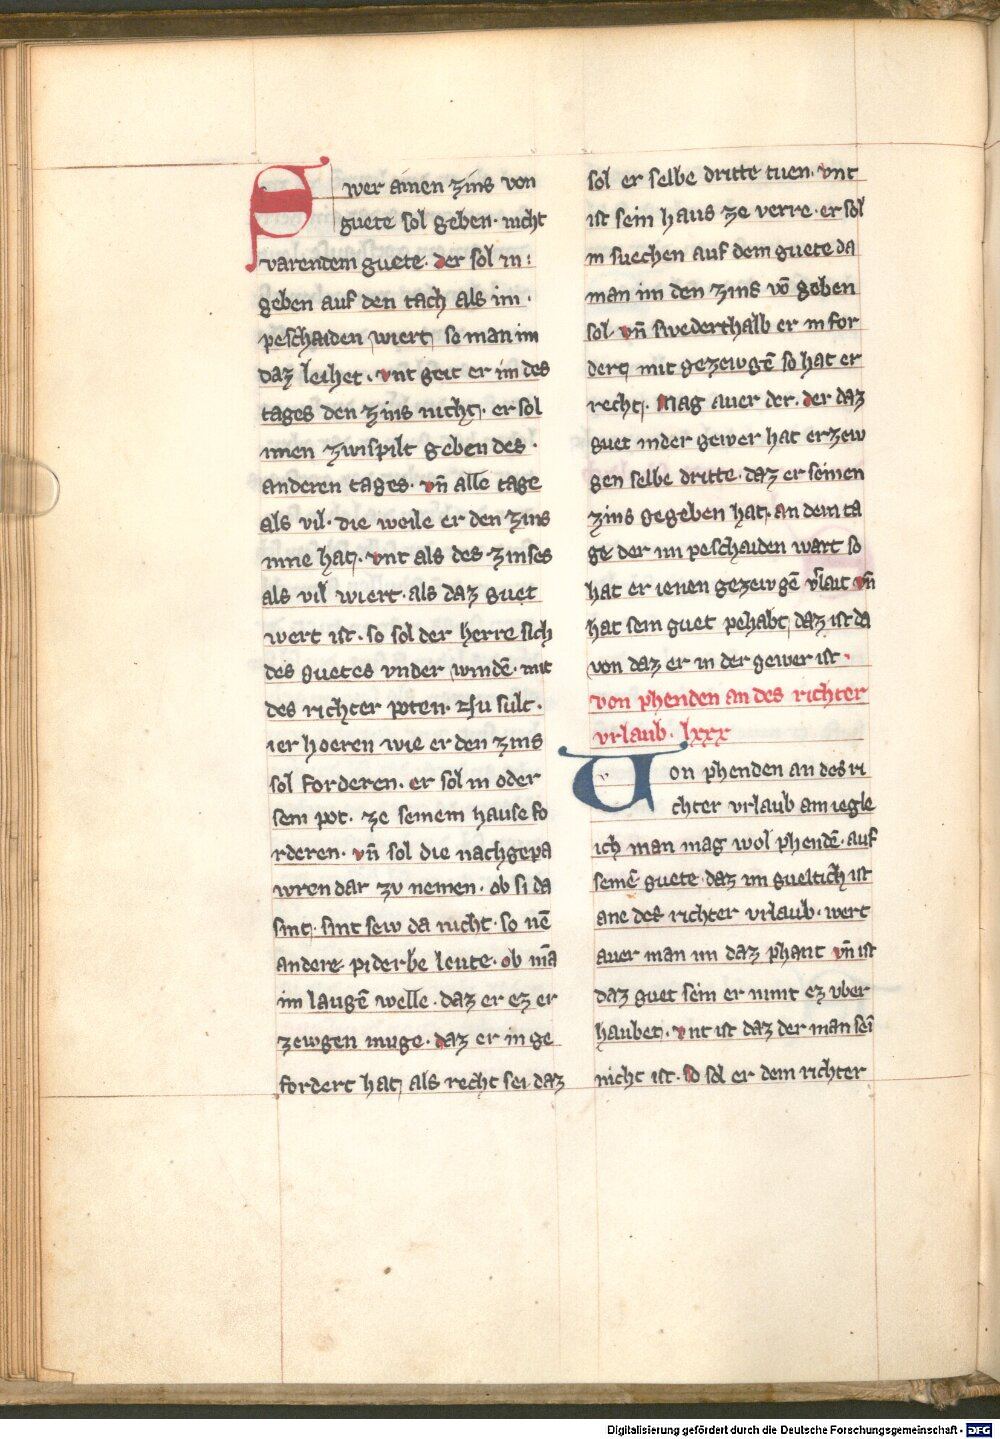 Swer ainen zins von
guete sol geben · nicht
varentem guete · der sol in :
geben auf den tach als im ·
peschaiden wiert so man im
daz leihet · vnt geit er im des
tages den zins nicht · er sol
imen zwispilt geben des ·
anderen tages · vn̄ alle tage
als vil · die weile er den zins
inne hat · vnt als des zinses
als vil wiert · als daz guet
wert ist · so sol der herre sich
des guetes vnder windē · mit
des richter poten · sult ·
ier hoeren wie er den zins
sol forderen · er sol in oder
sein pot · ze seinem hause fo
rderen · vn̄ sol die nachgepa
wren dar zv nemen · ob si da
sint · sint sew da nicht · so nē
andere piderbe leute · ob mā
im laugē welle · daz er ez er
zewgen muge · daz er in ge
fordert hat als recht sei · daz
sol er selbe dritte tuen · vnt
ist sein haus ze verre · er sol
in suechen auf dem guete da
man im den zins vō geben
sol · vn̄ swederthalb er in for
dert mit gezewgē so hat er
recht · Mag auer der · der daz
guet in der gewer hat erzew
gen selbe dritte · daz er seinen
zins gegeben hat · an dem ta
ge der im peschaiden wart so
hat er ienen gezewgē v̄lait vn̄
hat sein guet pehabt, daz ist da
von daz er in der gewer ist ·
von phenden an des richter
vrlaub · lxxx
Von phenden an des ri
chter vrlaub ain iegle
ich man mag wol phendē · auf
seinē guete · daz im gueltich ist
ane des richter vrlaub · wert
auer man im daz phant vn̄ ist
daz guet sein er nimt ez vber
haubet · vnt ist daz der man seī
nicht ist · so sol er dem richter
Digitalisierung gefördert durch die Deutsche Forschungsgemeinschaft - DFG